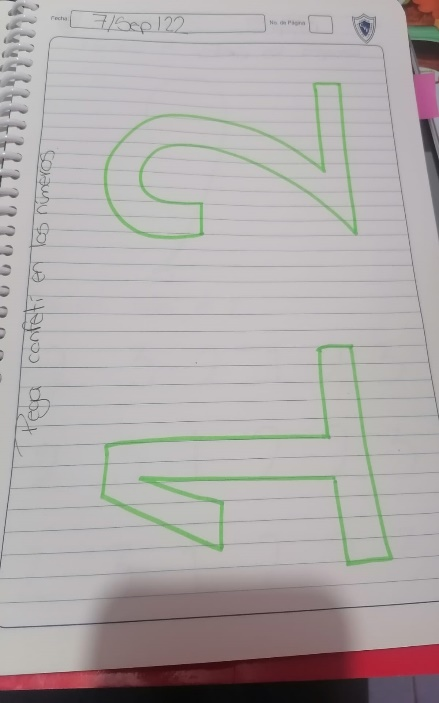 Fecha: 7/Sep/22 No. de Página
Pega confeti en los números
1 2